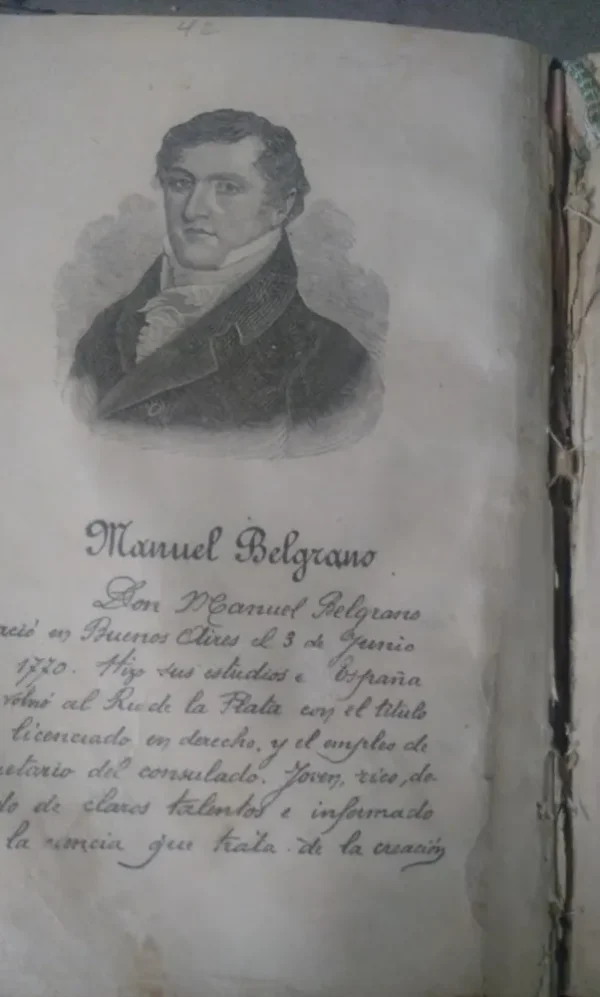 42
Manuel Belgrano
Don Manuel Belgrano
ació en Buenos Aires el 3 de Junio
1770. Hizo sus estudios e España
volvió al Rio de la Plata con el titulo
licenciado en derecho, y el empleo de
retario del consulado. Joven, rico, do-
do de claros talentos e informado
la ciencia que trata de la creación